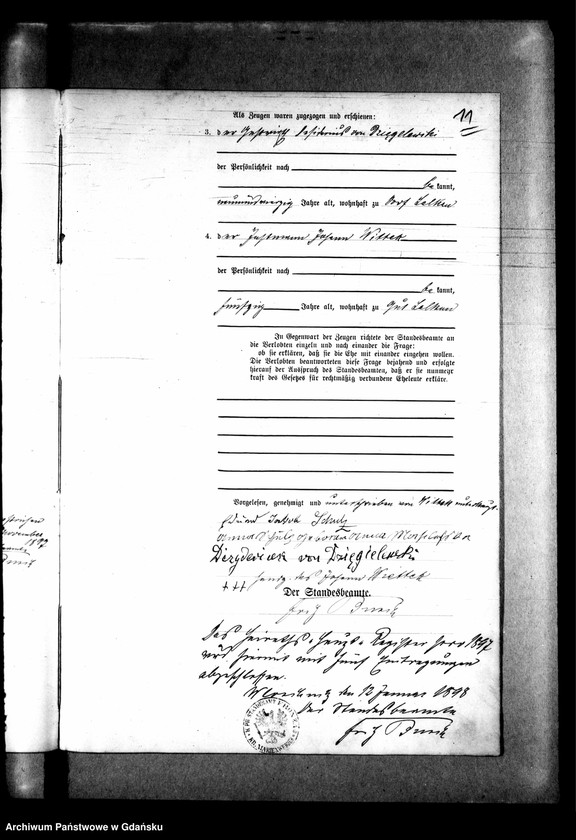 11
Als Zeugen waren zugezogen und erschienen:
3. der von Dzięgelewski
der Persönlichkeit nach
bekannt,
neunundvierzig Jahre alt, wohnhaft zu Dorf Lalkau
4. der Instmann Johann Wittek
der Persönlichkeit nach
bekannt,
fünfzig Jahre alt, wohnhaft zu Gut Lalkau
In Gegenwart der Zeugen richtete der Standesbeamte an
die Verlobten einzeln und nach einander die Frage:
ob sie erklären, daß sie die Ehe mit einander eingehen wollen.
Die Verlobten beantworteten diese Frage bejahend und erfolgte
hierauf der Ausspruch des Standesbeamten, daß er sie nunmehr
kraft des Gesetzes für rechtmäßig verbundene Eheleute erkläre.
Vorgelesen, genehmigt und unterschrieben von Wittek
Eduard Jakob Schulz
Schulz geborene
von Dzięgielewski
+++ Handz. des Johann Wittek
Der Standesbeamte.
Fritz
Das Heiraths-Haupt-Register pro 1897
wird hiermit mit fünf Eintragungen
abgeschlossen.
den 12 Januar 1898
Der Standesbeamte
Fritz
November
1897
Archiwum Państwowe w Gdańsku